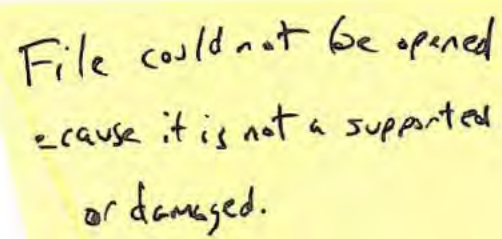 File could not be opened
ecause it is not a supported
or damaged.